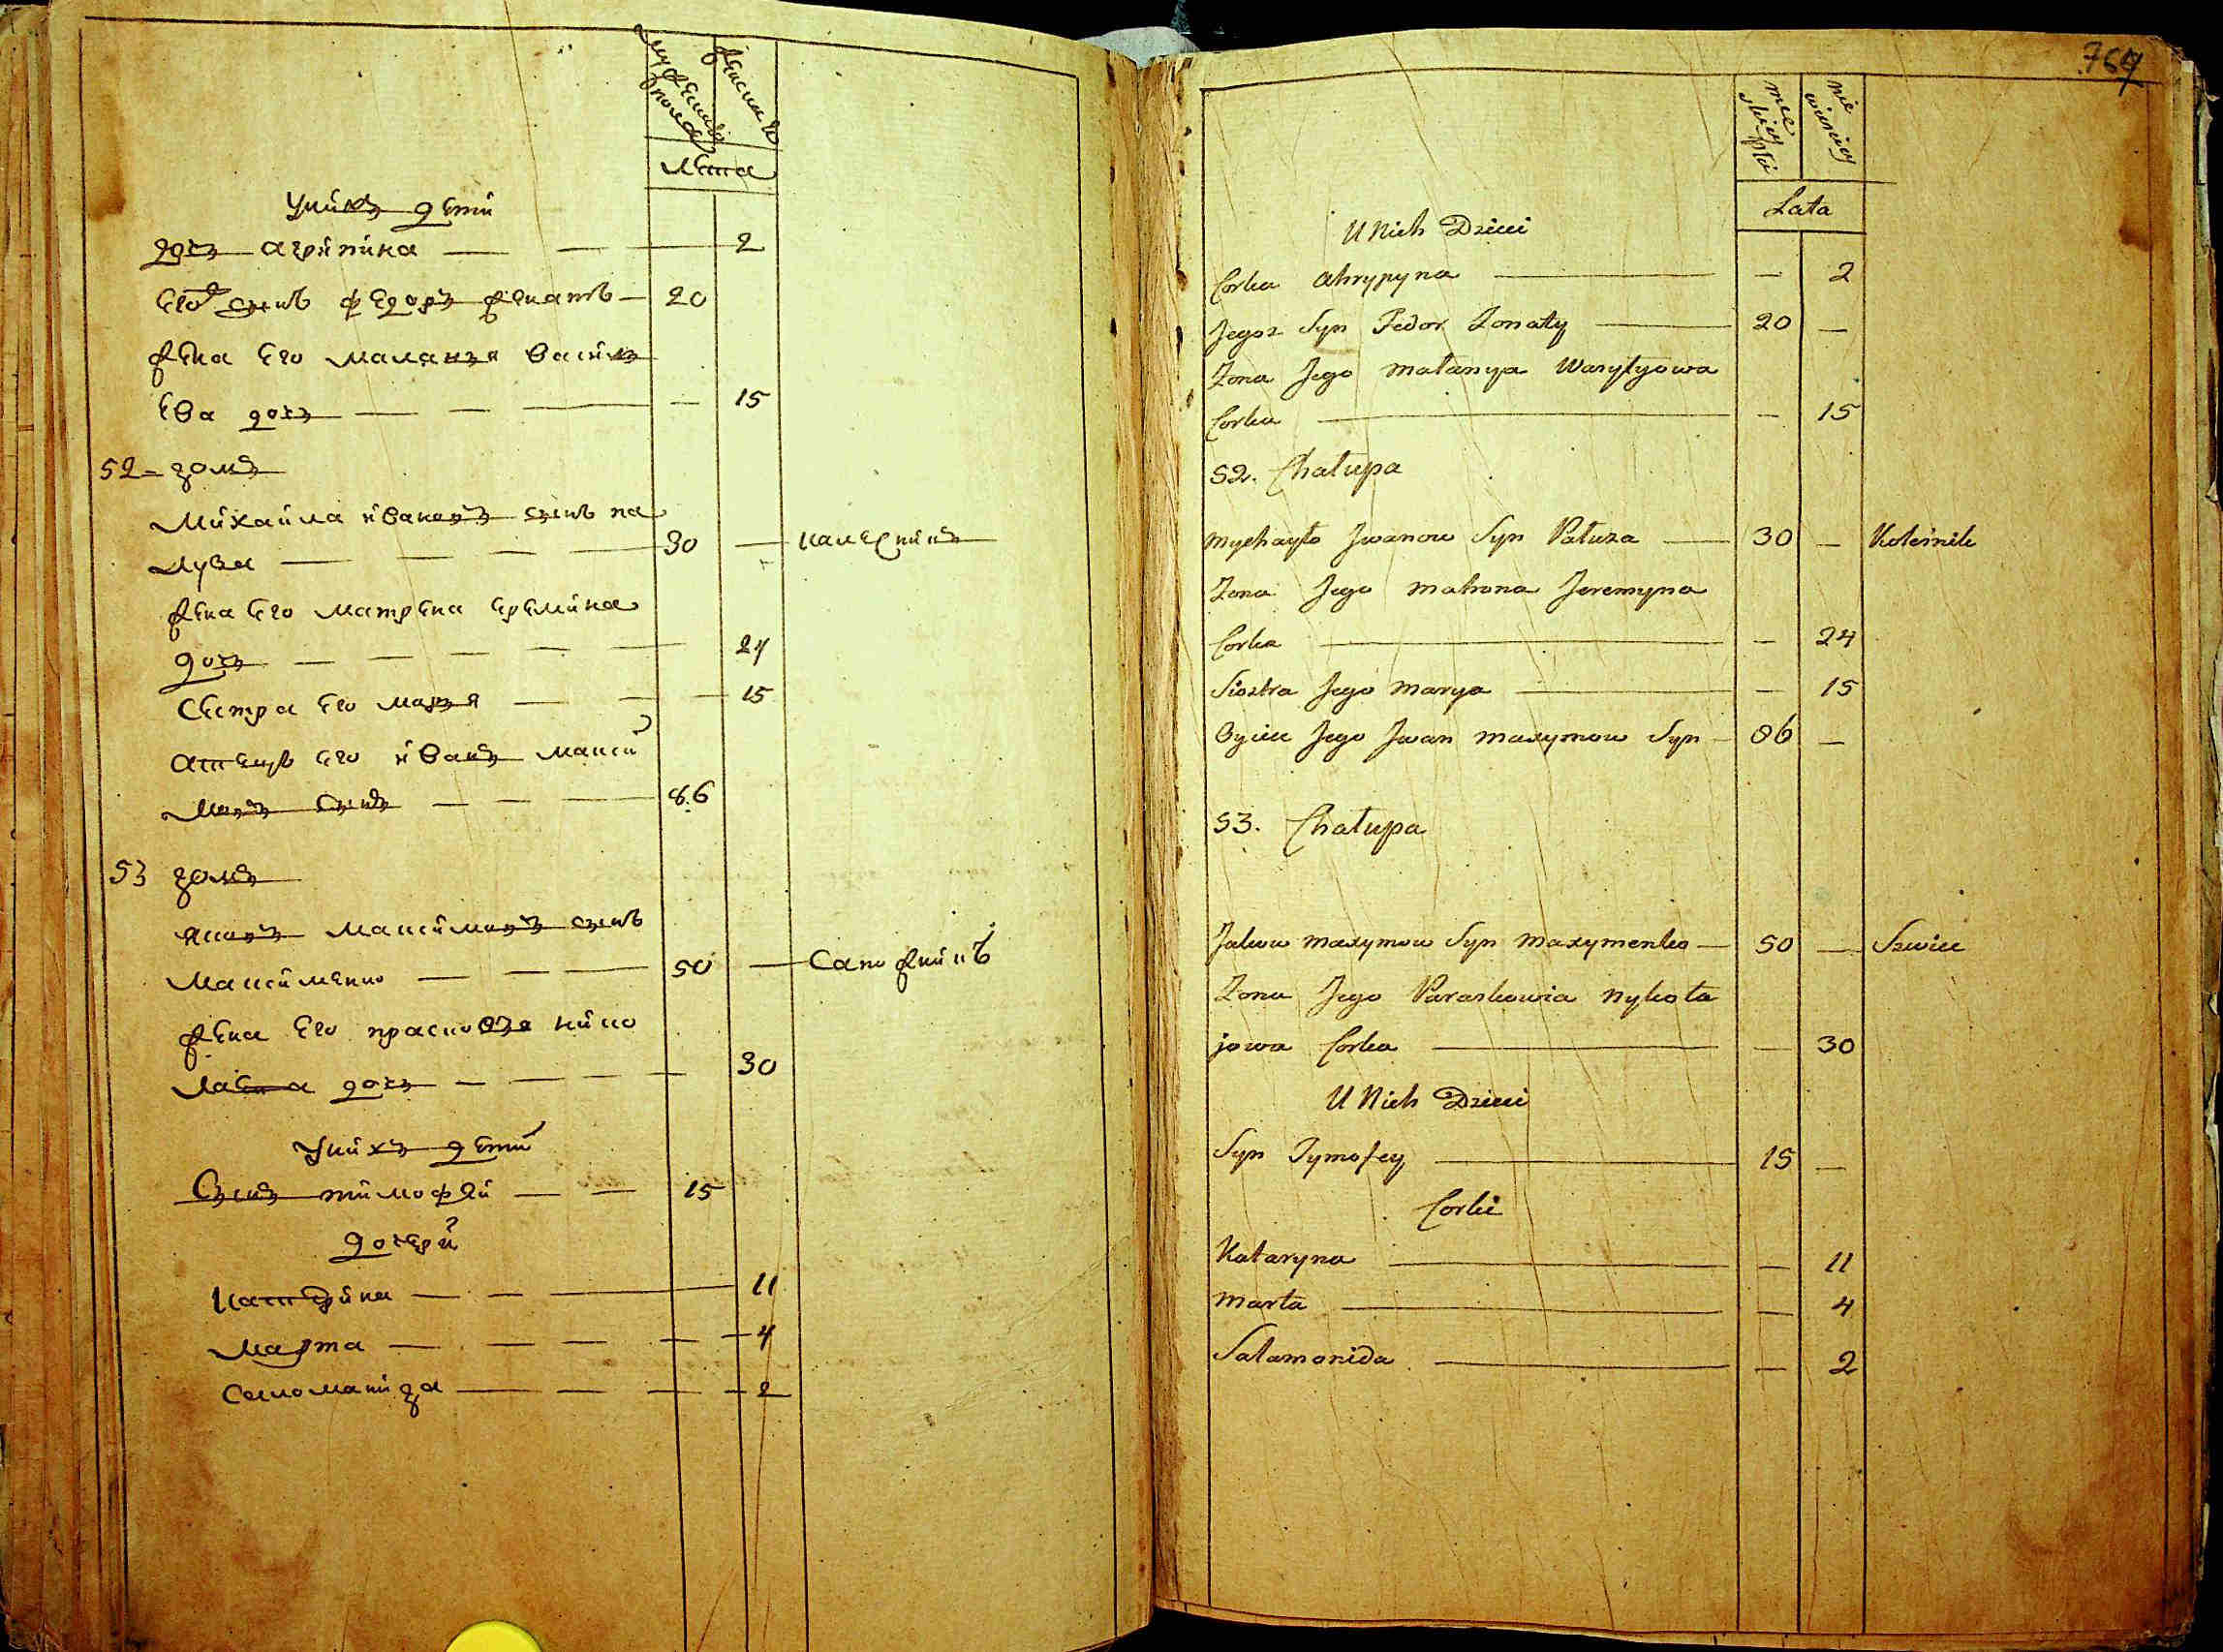 мужеска полу
женска
лета
у них дети
дочь агрипина — — — 2
его сынъ федоръ женатъ — 20
жена его маланья васил
ева дочь — — — — 15
52 = домъ
Михаила ивановъ сынъ па
луза — — — — 30 — колесникъ
жена его матрена еремина
дочь — — — — — 24
сестра его марья — — — 15
атецъ его иванъ макси
мовъ сынъ — — — 86
53 домъ
яковъ максимовъ сынъ
максименко — — — 50 — сапожникъ
жена его прасковья нико
лаева дочь — — — — 30
у них дети
сынъ тимофей — — 15
дочери
катерина — — — 11
марта — — — — — 4
соломанида — — — — 2
767
męskiey płci
niewieściey
Lata
U Nich Dzieci
Corka Ahrypyna — — 2
Jegoz Syn Fedor Zonaty — 20 —
Zona Jego Małanya Wasylyowa
Corka — — 15
52. Chałupa
Mychayło Jwanow Syn Pałuza — 30 — Kołeśnik
Zona Jego Matrona Jeremyna
Corka — — 24
Siostra Jego Marya — — 15
Oyciec Jego Jwan Maxymow Syn — 86 —
53. Chałupa
Jakow Maxymow Syn Maxymenko — 50 — Szwiec
Zona Jego Paraskowia Nykoła
jowa Corka — — 30
U Nich Dzieci
Syn Tymofey — 15 —
Corki
Kataryna — — 11
Marta — — 4
Sałamonida — — 2